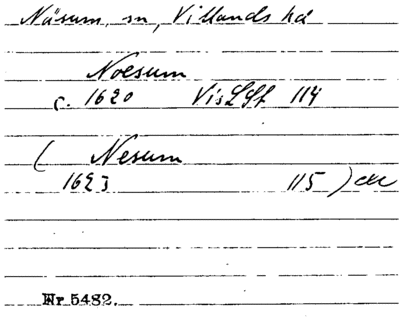 Näsum, sn, Villands hd
Noesum
c. 1620 VisLSt 114
( Nesum
1623 115 )
Nr 5482.